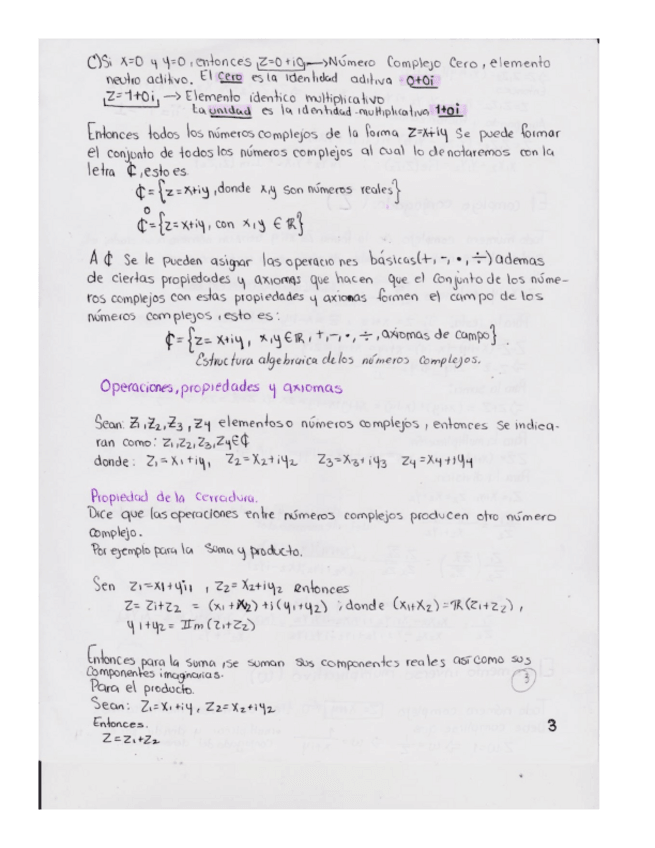 C) Si x=0 y y=0, entonces z=0+i0 → Número Complejo Cero, elemento
neutro aditivo. El cero es la identidad aditiva 0+0i
z=1+0i, → Elemento identico multiplicativo
La unidad es la identidad multiplicativa 1+0i
Entonces todos los números complejos de la forma z=x+iy se puede formar
el conjunto de todos los números complejos al cual lo denotaremos con la
letra ₵, esto es
₵={z=x+iy, donde x,y son números reales}
o
₵={z=x+iy, con x,y ∈ ℝ}
A ₵ se le pueden asignar las operaciones básicas (+, -, •, ÷) ademas
de ciertas propiedades y axiomas que hacen que el conjunto de los núme-
ros complejos con estas propiedades y axiomas formen el campo de los
números complejos, esto es:
₵={z=x+iy, x,y∈ℝ, +, -, •, ÷, axiomas de campo}.
Estructura algebraica de los números complejos.
Operaciones, propiedades y axiomas
Sean: Z1, Z2, Z3, Z4 elementos o números complejos, entonces se indica-
ran como: Z1, Z2, Z3, Z4 ∈ ₵
donde: Z1=x1+iy1 Z2=x2+iy2 Z3=x3+iy3 Z4=x4+iy4
Propiedad de la Cerradura.
Dice que las operaciones entre números complejos producen otro número
complejo.
Por ejemplo para la suma y producto.
Sen Z1=x1+yi1, Z2=x2+iy2 entonces
Z=Z1+Z2 = (x1+x2)+i(y1+y2) ; donde (x1+x2)=ℝ(Z1+Z2),
y1+y2= IIm(Z1+Z2)
Entonces para la suma, se suman sus componentes reales así como sus
componentes imaginarias.
3
Para el producto.
Sean: Z1=x1+iy, Z2=x2+iy2
Entonces.
3
Z=Z1+Z2